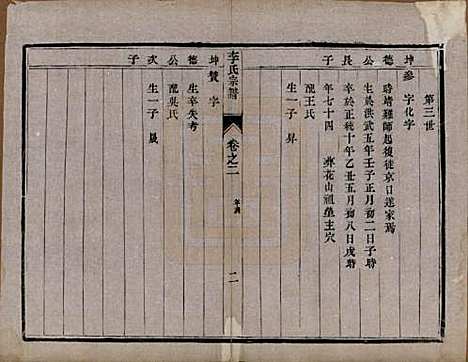 第三世
坤參 字化宇
德 時靖難師起復徙京口遂家焉
公 生於洪武五年壬子正月初二日子時
長 卒於正統十年乙丑五月初八日戌時
子 年七十四 葬花山祖塋主穴
配王氏
生一子 昇
李氏宗譜 卷之二 年表 二
坤贊 字
德 生卒失考
公 配吳氏
次 生一子 晟
子